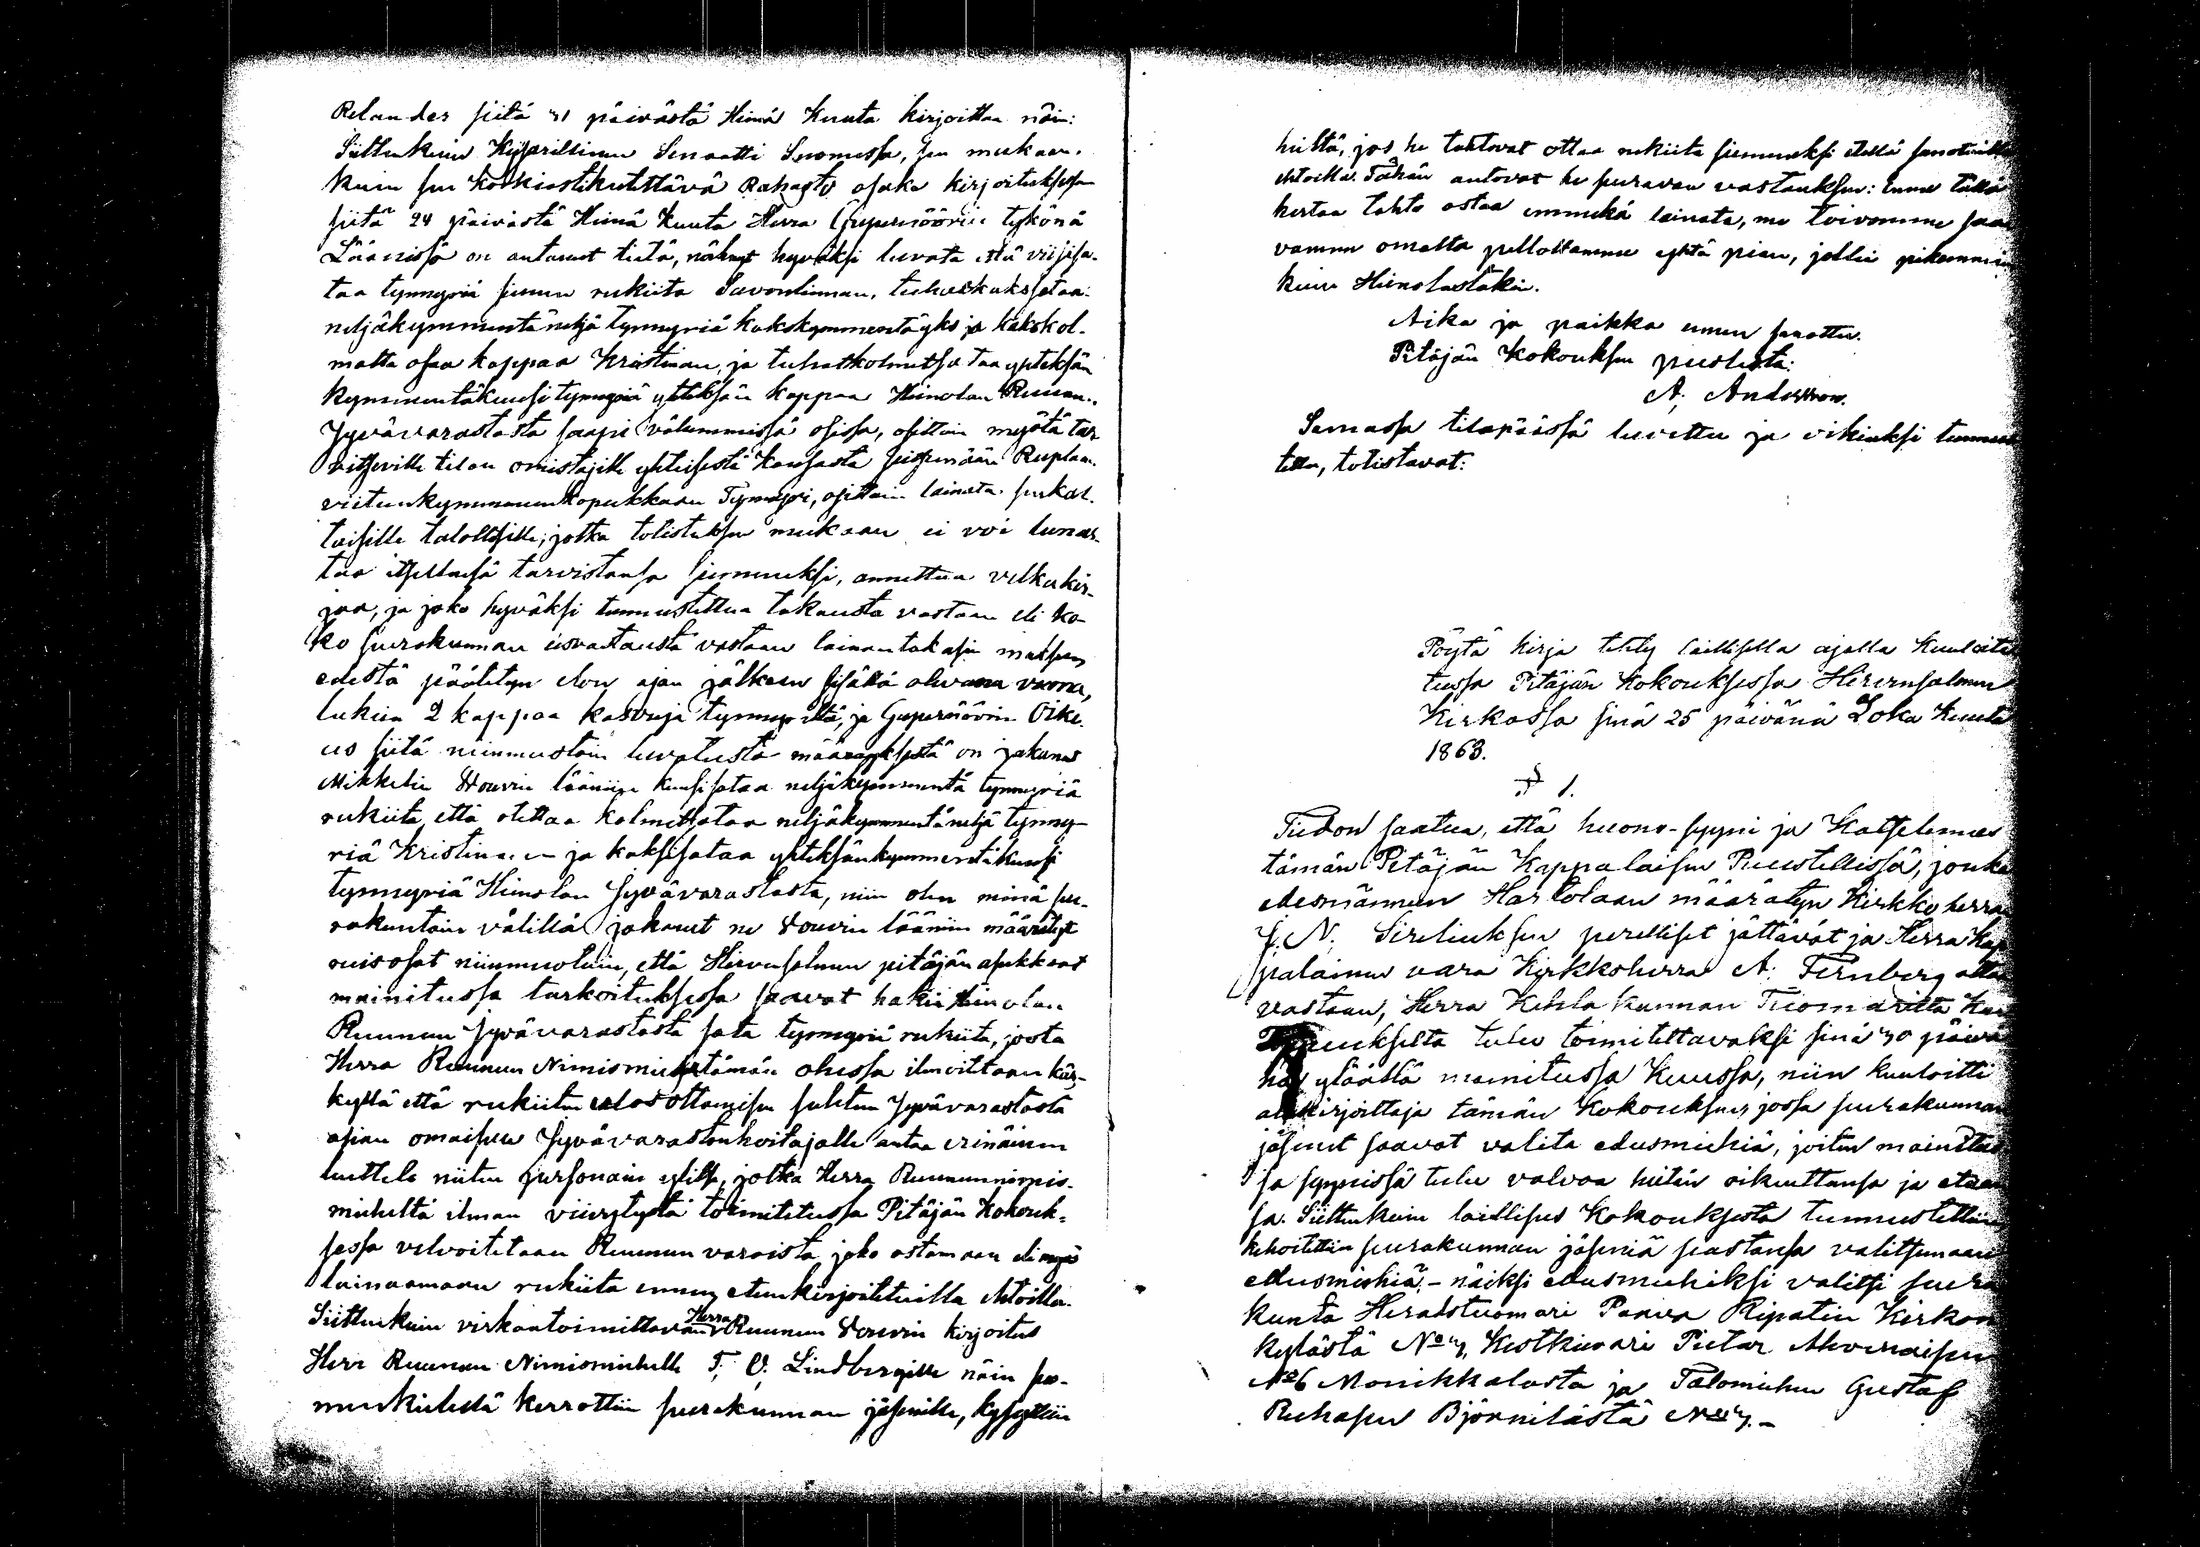 Relander siitä 31 päivästä Heinä Kuuta kirjoittaa näin:
Siittenkuin Keisarillinen Senaatti Suomessa, sen mukaan.
kuin sen korkiastikutittävä Rahasto osaka kirjoituksessa
siitä 24 päivästä Heinä Kuuta Herra Gupernöörin tykönä
Läänissä on antanut tietä, nähnyt hyväksi luvata että viisisa-
taa tynnyriä siemen rukiita Savonlinnan, tuhatkakssataa-
neljäkymmentäneljä tynnyriä kakskymmentäyks ja kakskol-
matta osaa kappaa Kristinan, ja tuhatkolmesataa yhdeksän
kymmentäkuusi tynnyriä yhdeksän kappaa Heinolan Ruunun
Jyvävarastosta saapi vähemmissä osissa, osittain myötä tar-
vitseville tilan omistajille yhteisestä kansasta seitsemään Ruplaan
viitenkymmenenkopeekkaan Tynnyri, osittain lainata sen kal-
taisille talollisille, jotka todistuksen mukaan ei voi lunas-
taa itsellensä tarvistansa siemeneksi, annettua velkakir-
jaa, ja joko hyväksi tunnustettua takausta vastaan eli ko-
ko seurakunnan edesvastausta vastaan lainan takasin maksun
edestä päätetyn elon ajan jälkeen sisällä olevana vuonna,
lukein 2 kappaa kasvuja tynnyriltä, ja Gupernöörin Oike-
us siitä niinmuotoin luvatusta määräyksestä on jakanut
Mikkelin Vouvin lääniin kuusisataa neljäkymmentä tynnyriä
rukiita, että otettaa kolmesataa neljäkymmentäneljä tynny-
riä Kristinan ja kaksisataa yhdeksänkymmentäkuusi
tynnyriä Heinolan Jyvävarastosta, niin olen minä seu-
rakuntain välillä jakanut ne Vouvin lääniin määrätyt
ruis osat niinmuotoin, että Hirvensalmen pitäjän asukkaat
mainitussa tarkoituksessa saavat hakia Heinolan
Ruunun Jyvävarastosta sata tynnyriä rukiita, josta
Herra Ruunun Nimismiestä tämän ohessa ilmoitetaan käs-
kyllä että rukiitten ulosottamisen suhteen Jyvävarastosta
asian omaisen Jyvävarastonhoitajalle antaa erinäinen
luettelo niiden personain ylitse, jotka Herra Ruununnimis-
mieheltä ilman viivytystä toimitetussa Pitäjän Kokouk-
sessa velvoitetaan Ruunun varoista joko ostamaan eli myös
lainaamaan rukiita ennen etunkirjoitetuilla ehtoilla.
Siittenkuin virkaatoimittavan Herra Ruunun Vouvin kirjoitus
Herr Ruunun Nimismiehelle F. O. Lindbergille näin suo-
menkielestä kerrottiin seurakunnan jäsenille, kysyttiin
heiltä, jos he tahtovat ottaa rukiita siemeneksi edellä sanotuilla
ehtoilla. Tähän antovat he seuraavan vastauksen: Emme tällä
kertaa tahto ostaa emmekä lainata, me toivomme saa-
vamme omalta pelloltamme yhtä pian, jollei pikemmin
kuin Heinolastakin.
Aika ja paikka ennen sanottu.
Pitäjän Kokouksen puolesta:
A. Andersson.
Samassa tilapäässä luvettu ja oikiaksi tunnus-
tettu, todistavat:
Pöytä kirja tehty laillisella ajalla Kuuloite-
tussa Pitäjän Kokouksessa Hirvensalmen
Kirkossa sinä 25 päivänä Loka Kuuta
1863.
§ 1.
Tiedon saatua, että huone-syyni ja Katselemus
tämän Pitäjän Kappalaisen Puustellissä, jonka
edesmännen Hartolaan määrätyn Kirkkoherra
J. N. Sireliuksen perelliset jättävät ja Herra Kap-
palainen vara Kirkkoherra A. Fernberg ottaa
vastaan, Herra Kihlakunnan Tuomarilta
tulee toimitettavaksi sinä 30 päivä
nä ylläällä mainitussa Kuussa, niin kuuloitti
allekirjoittaja tämän Kokouksen, jossa seurakunnan
jäsenet saavat valita edusmiehiä, joiden mainitus-
sa syynissä tulee valvoa heidän oikeuttansa ja etuan-
sa. Siittenkuin laillisus Kokouksesta tunnustettiin
kehoitettiin seurakunnan jäseniä seastansa valitsemaan
edusmiehiä, - näiksi edusmiehiksi valitsi seura
kunta Herastuomari Paava Ripatin Kirkon
kylästä No 4, Kestkievari Pietar Ahvenaisen
No 6 Monikkalasta ja Talomiehen Gustaf
Ruhasen Björnilästä No 4. -